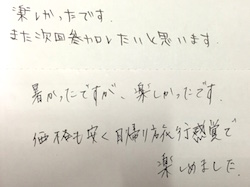 楽しかったです.
また次回参加したいと思います.
暑かったですが、楽しかったです.
価格も安く日帰り旅行感覚で
楽しめました.